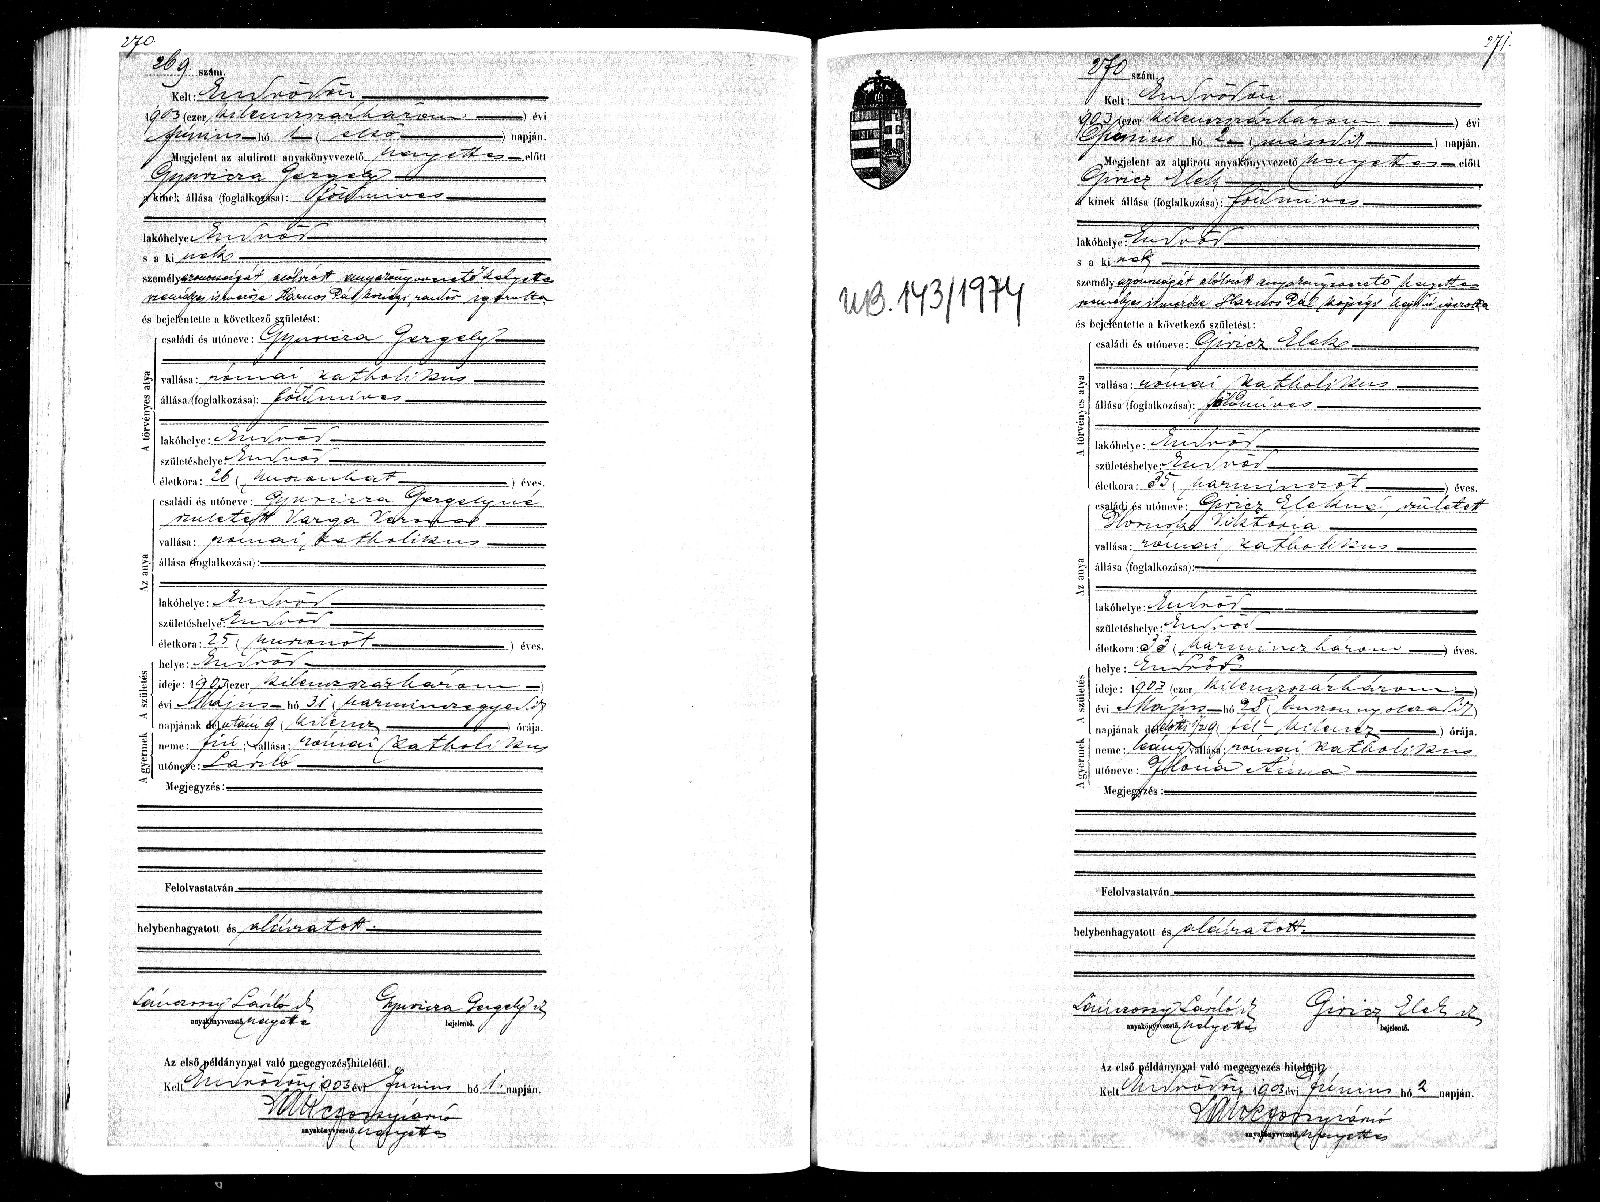 270
269 szám.
Kelt: Endrődön
1903 (ezer kilenczszázhárom) évi
Junius hó 1 (első) napján.
Megjelent az alulirott anyakönyvvezető helyettes előtt
Gyuricza Gergely
a kinek állása (foglalkozása): földmives
lakóhelye: Endrőd
s a ki nek
személyazonosságát alólirott anyakönyvvezető helyettes
személyes ismerése Harnos Pál községi rendőr igazolta
és bejelentette a következő születést:
A törvényes atya
családi és utóneve: Gyuricza Gergely
vallása: római katholikus
állása (foglalkozása): földmives
lakóhelye: Endrőd
születéshelye: Endrőd
életkora: 26 (huszonhat) éves.
Az anya
családi és utóneve: Gyuricza Gergelyné
született Varga
vallása: római katholikus
állása (foglalkozása):
lakóhelye: Endrőd
születéshelye: Endrőd
életkora: 25 (huszonöt) éves.
A születés
helye: Endrőd
ideje: 1903 (ezer kilenczszázhárom)
évi Május hó 31 (harminczegyedik)
napjának délutáni 9 (kilencz) órája.
A gyermek
neme: fiú vallása: római katholikus
utóneve: László
Megjegyzés:
Felolvastatván
helybenhagyatott és aláiratott.
László Gyuricza Gergely
anyakönyvvezető helyettes bejelentő.
Az első példánynyal való megegyezés hiteléül.
Kelt Endrődön, 1903 évi Junius hó 1 napján.
anyakönyvvezető helyettes
271.
270 szám.
Kelt: Endrődön
1903 (ezer kilenczszázhárom) évi
Junius hó 2 (második) napján.
Megjelent az alulirott anyakönyvvezető helyettes előtt
Giricz Elek
a kinek állása (foglalkozása): földmives
lakóhelye: Endrőd
s a ki nek
személyazonosságát alólirott anyakönyvvezető helyettes
személyes ismerése Harnos Pál községi igazolta
és bejelentette a következő születést:
A törvényes atya
családi és utóneve: Giricz Elek
vallása: római katholikus
állása (foglalkozása): földmives
lakóhelye: Endrőd
születéshelye: Endrőd
életkora: 35 (harminczöt) éves.
Az anya
családi és utóneve: Giricz Elekné, született
Viktória
vallása: római katholikus
állása (foglalkozása):
lakóhelye: Endrőd
születéshelye: Endrőd
életkora: 33 (harminczhárom) éves.
A születés
helye: Endrőd
ideje: 1903 (ezer kilenczszázhárom)
évi Május hó 28 (huszonnyolczadik)
napjának délelőtti ½9 (fél kilencz) órája.
A gyermek
neme: leány vallása: római katholikus
utóneve: Ilona Anna
Megjegyzés:
Felolvastatván
helybenhagyatott és aláiratott.
László Giricz Elek
anyakönyvvezető helyettes bejelentő.
Az első példánynyal való megegyezés hiteléül.
Kelt Endrődön, 1903 évi Junius hó 2 napján.
anyakönyvvezető helyettes
UB. 143/1974